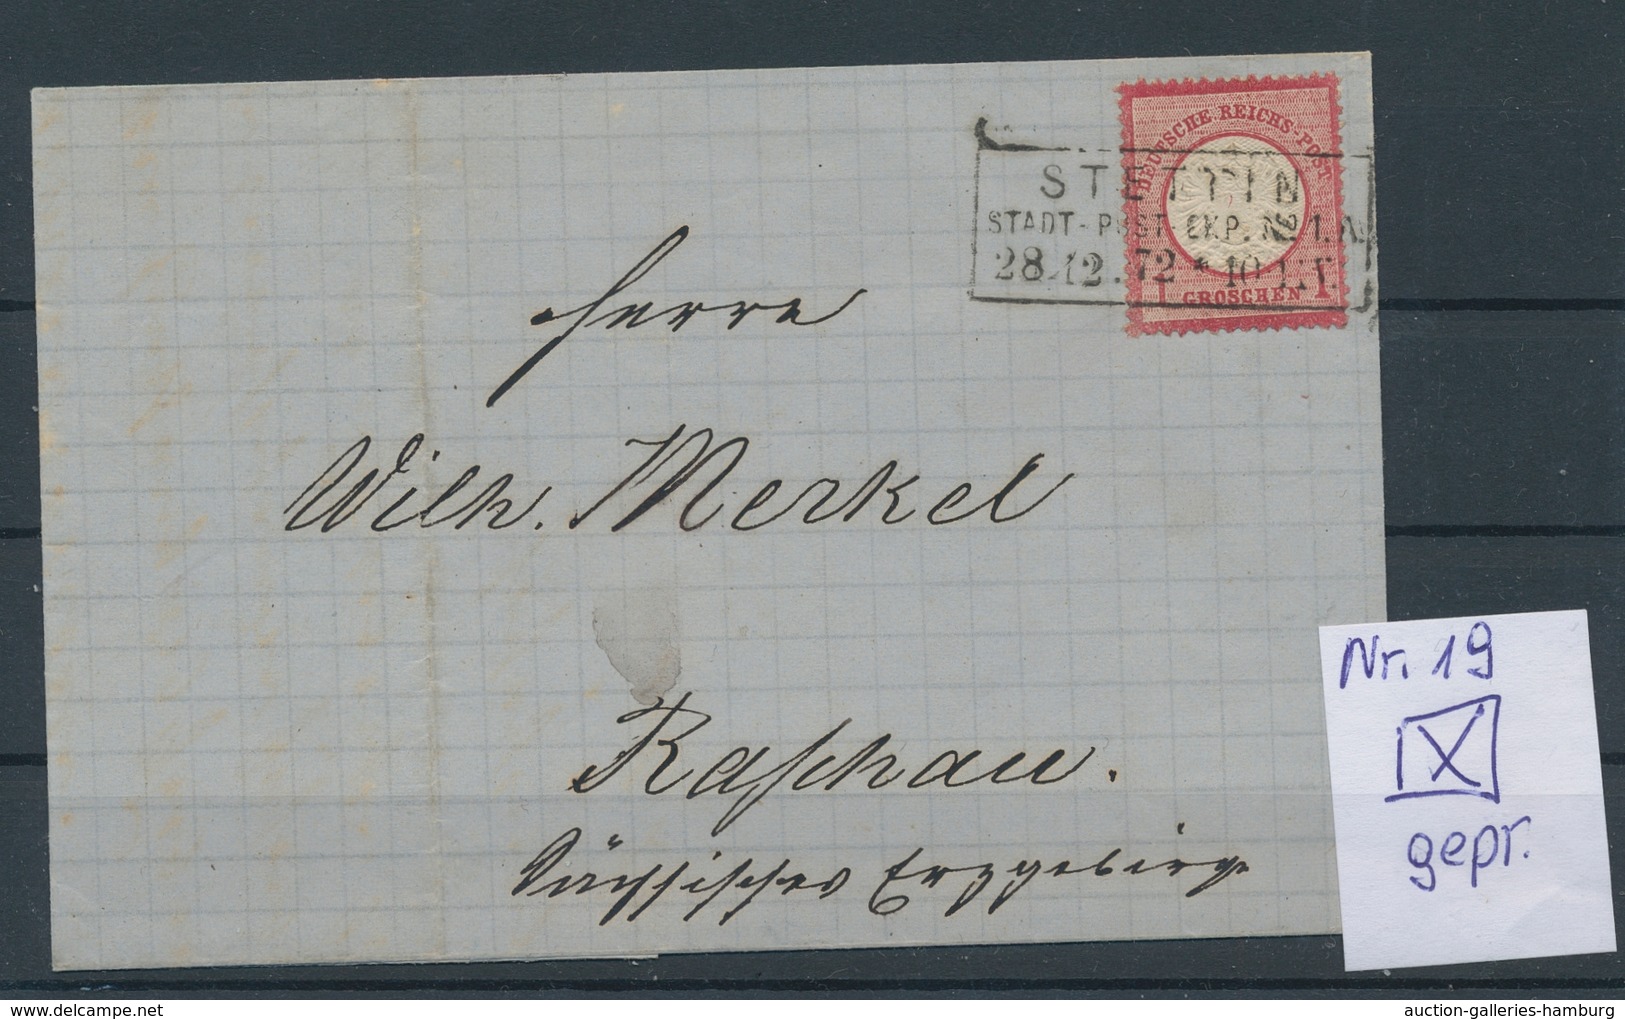 DEUTSCHE REICHS-POST
STETTIN
STADT-POST-EXP. No 1. A.
28.12.72 * 10
1 GROSCHEN 1
Herrn
Wilh. Merkel
Raschau.
Sächsisches Erzgebirge
Nr. 19
X
gepr.
auction-galleries-hamburg